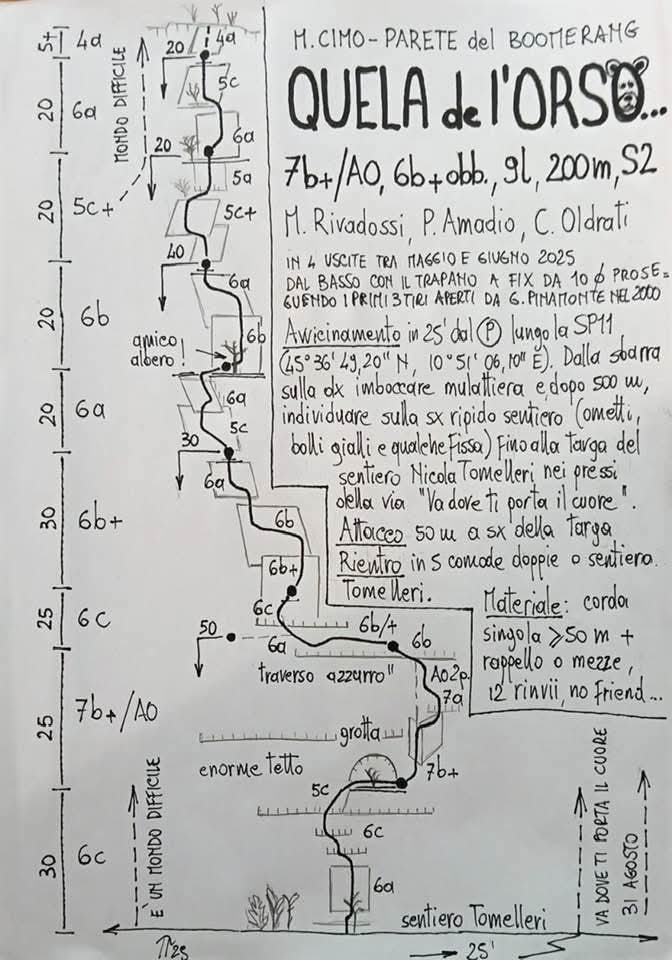 M. CIMO - PARETE del BOOMERANG
QUELA de l'ORSO...
7b+/A0, 6b+ obb., 9l, 200m, S2
M. Rivadossi, P. Amadio, C. Oldrati
IN 4 USCITE TRA MAGGIO E GIUGNO 2025
DAL BASSO CON IL TRAPANO A FIX DA 10 Ø PROSE=
GUENDO I PRIMI 3 TIRI APERTI DA G. PINAMONTE NEL 2000
Avvicinamento in 25' dal P lungo la SP11
(45°36'49,20" N, 10°51'06,10" E). Dalla sbarra
sulla dx imboccare mulattiera e, dopo 500 m,
individuare sulla sx ripido sentiero (ometti,
bolli gialli e qualche fissa) fino alla targa del
sentiero Nicola Tomelleri nei pressi
della via "Va dove ti porta il cuore".
Attacco 50 m a sx della targa
Rientro in 5 comode doppie o sentiero
Tomelleri.
Materiale: corda
singola ≥50 m +
rappello o mezze,
12 rinvii, no friend...
5+ 4a
20 6a
20 5c+
20 6b
20 6a
30 6b+
25 6c
25 7b+/A0
30 6c
MONDO DIFFICILE
20 4a
5c
6a
20
5a
5c+
40
6a
6b
amico
albero!
6a
5c
30
6a
6b
6b+
6c
6b/+
50
6a
6b
"traverso azzurro"
A02p.
7a
grotta
enorme tetto
7b+
5c
6c
6a
E' UN MONDO DIFFICILE
VA DOVE TI PORTA IL CUORE
31 AGOSTO
sentiero Tomelleri
25'